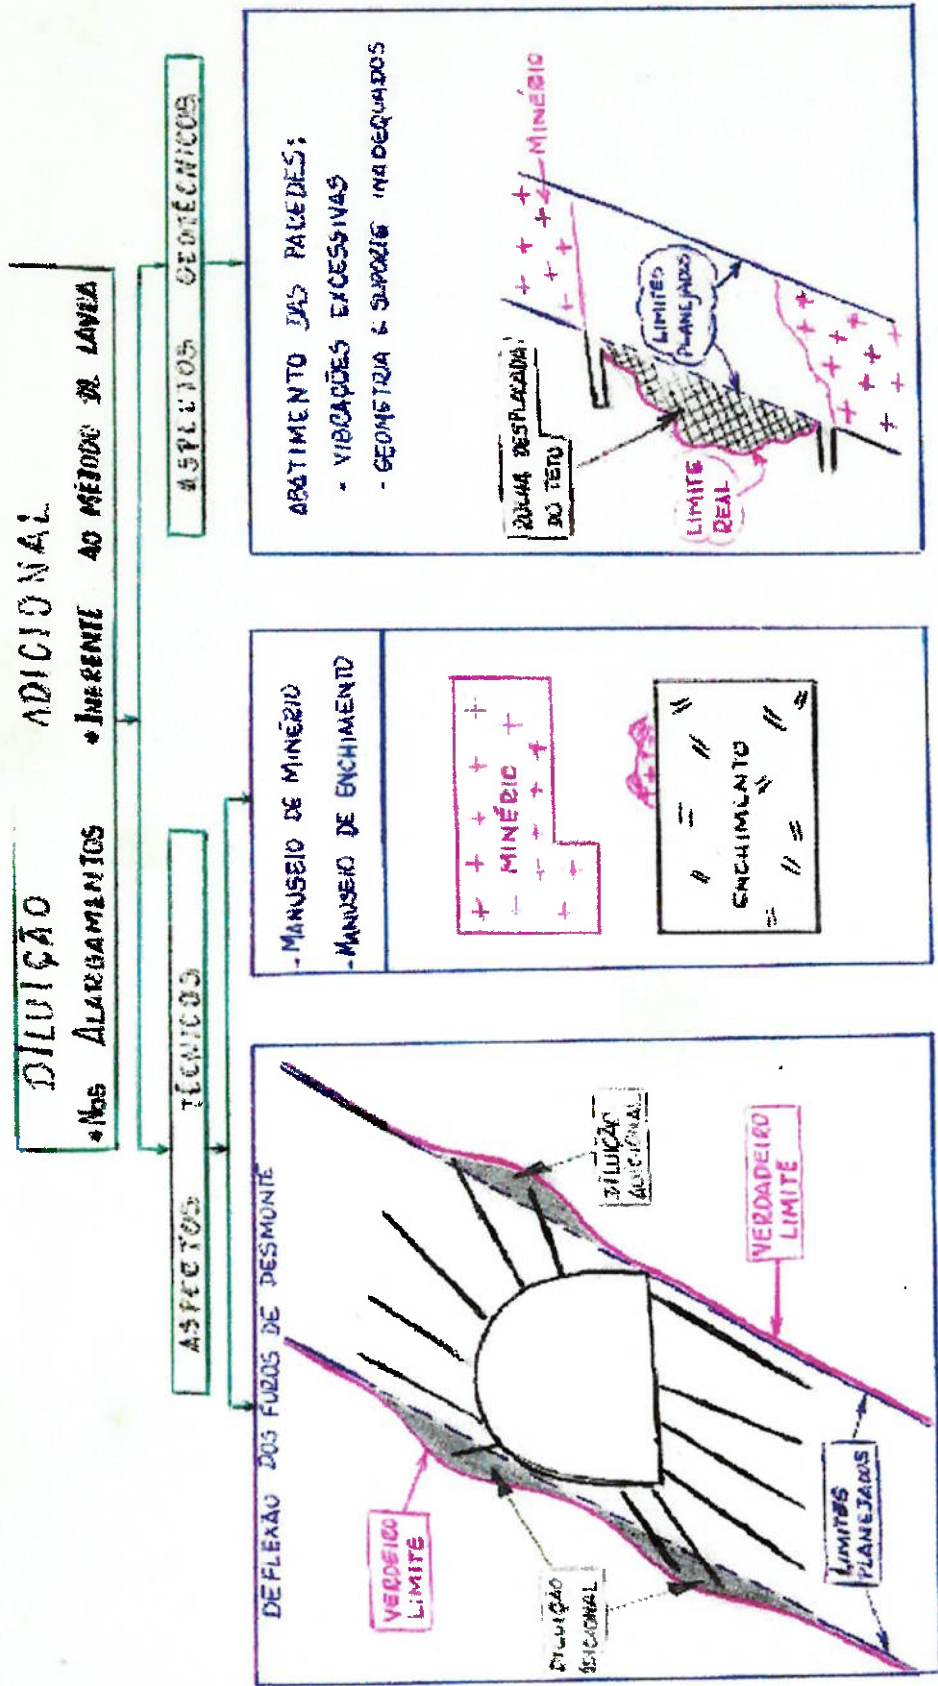 DILUIÇÃO ADICIONAL
• NOS ALARGAMENTOS • INERENTE AO MÉTODO DE LAVRA
ASPECTOS TÉCNICOS
ASPECTOS GEOTÉCNICOS
DEFLEXÃO DOS FUROS DE DESMONTE
VERDEIRO
LIMITE
DILUIÇÃO
ADICIONAL
DILUIÇÃO
ADICIONAL
VERDADEIRO
LIMITE
LIMITES
PLANEJADOS
- MANUSEIO DE MINÉRIO
- MANUSEIO DE ENCHIMENTO
MINÉRIO
ENCHIMENTO
ABATIMENTO DAS PAREDES:
- VIBRAÇÕES EXCESSIVAS
- GEOMETRIA E SUPORTE INADEQUADOS
ROCHA DESPLACADA
DO TETO
LIMITE
REAL
LIMITES
PLANEJADOS
MINÉRIO